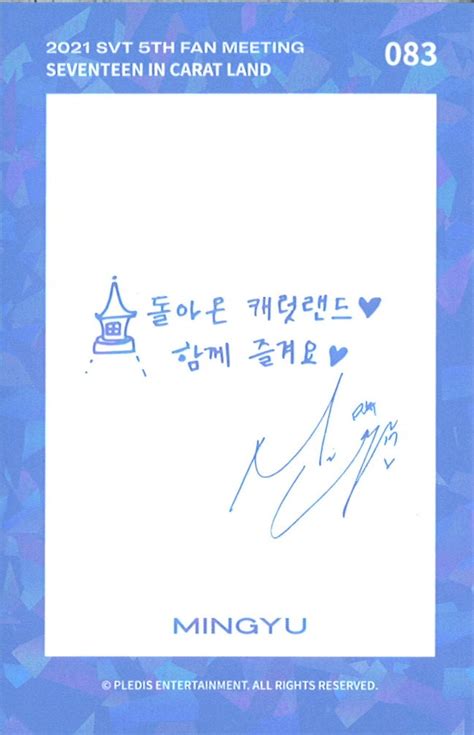 2021 SVT 5TH FAN MEETING
083
SEVENTEEN IN CARAT LAND
돌아온 캐럿랜드♥
함께 즐겨요♥
MINGYU
© PLEDIS ENTERTAINMENT. ALL RIGHTS RESERVED.